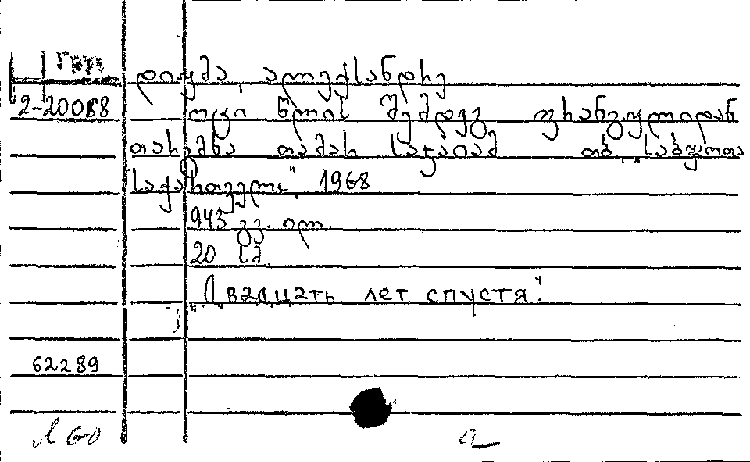 დიუმა, ალექსანდრე
2-20088 ოცი წლის შემდეგ ფრანგულიდან
თარგმნა თამარ თბ. "საბჭოთა
საქართველო", 1968
943 გვ. ილ.
20 სმ.
"Двадцать лет спустя".
62289